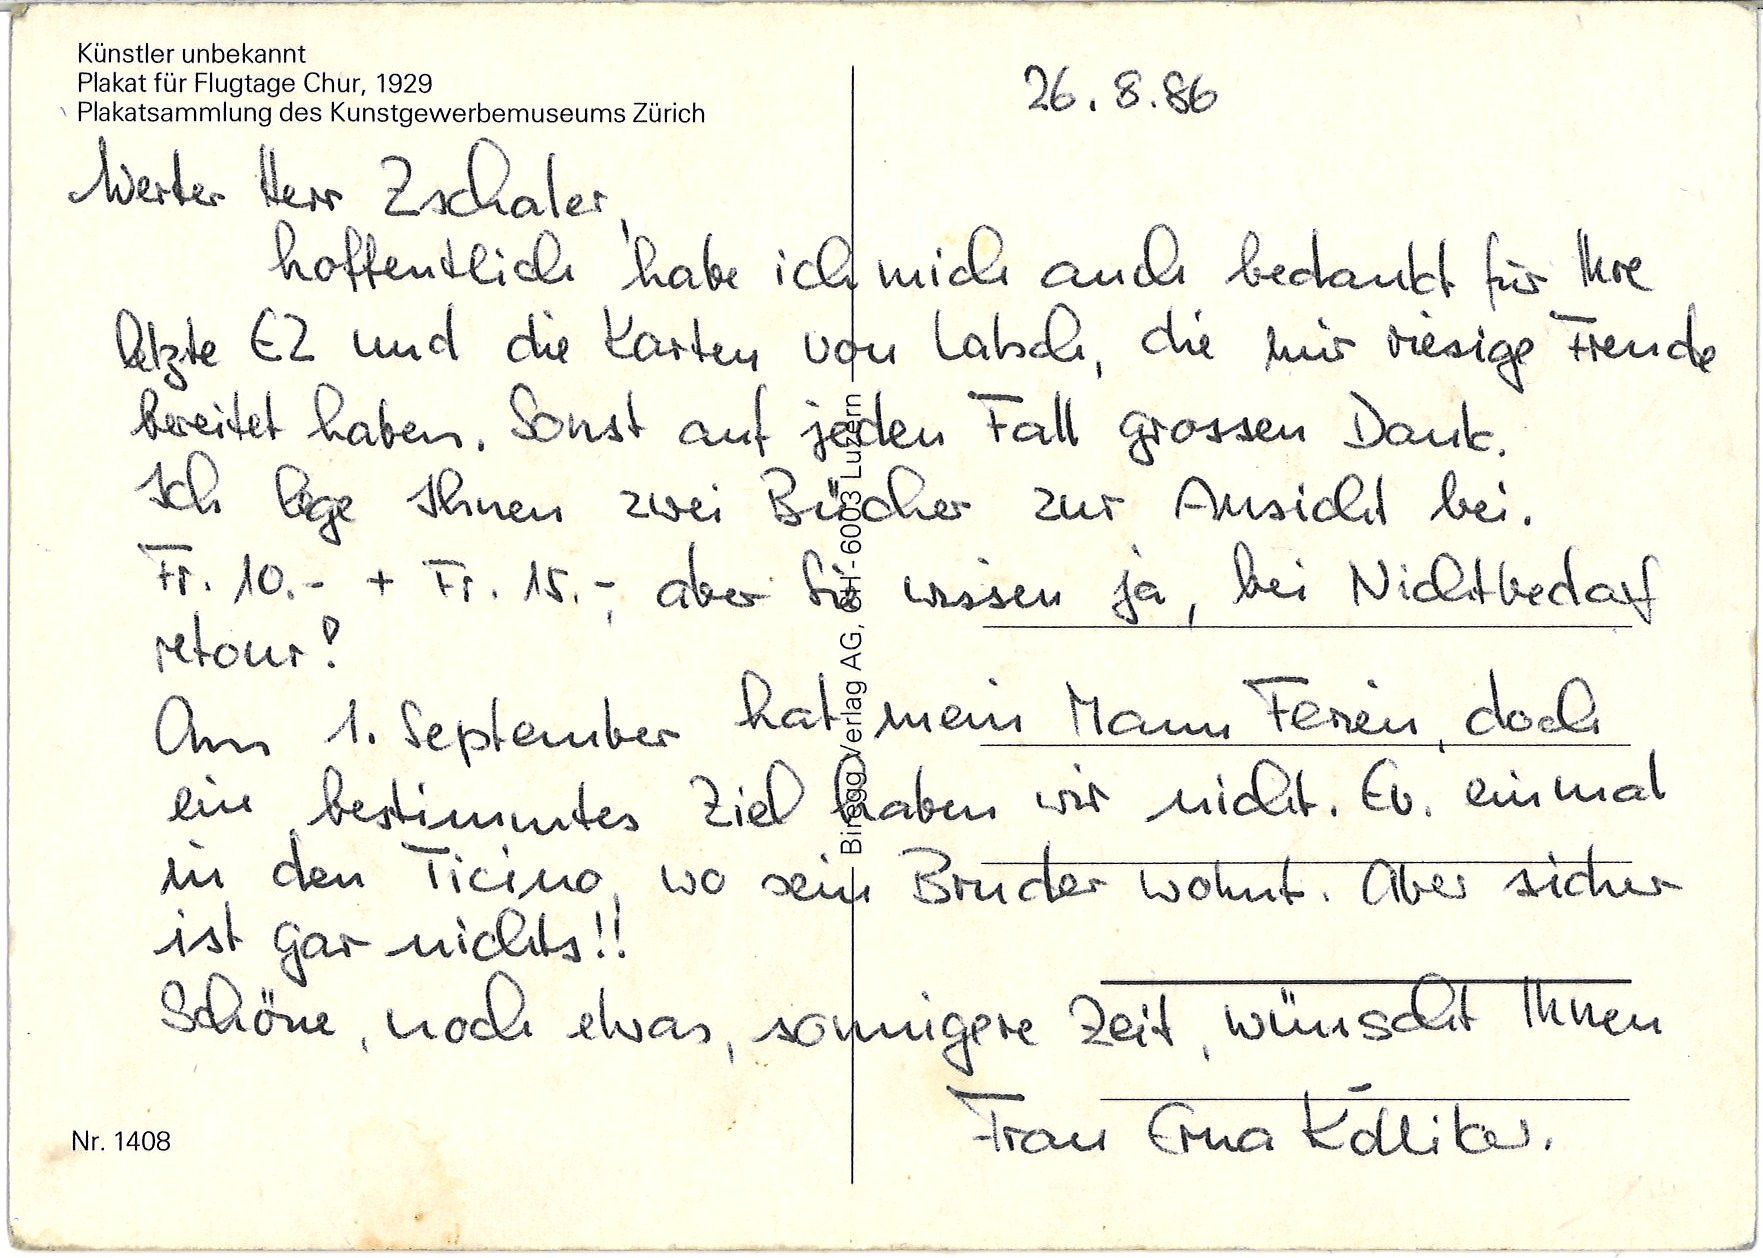 Künstler unbekannt
Plakat für Flugtage Chur, 1929
Plakatsammlung des Kunstgewerbemuseums Zürich
26.8.86
Werter Herr Zschaler,
hoffentlich habe ich mich auch bedankt für Ihre
letzte EZ und die Karten von Latsch, die mir riesige Freude
bereitet haben. Sonst auf jeden Fall grossen Dank.
Ich lege Ihnen zwei Bücher zur Ansicht bei.
Fr. 10.- + Fr. 15.-, aber Sie wissen ja, bei Nichtbedarf
retour!
Am 1. September hat mein Mann Ferien, doch
ein bestimmtes Ziel haben wir nicht. Ev. einmal
in den Ticino, wo sein Bruder wohnt. Aber sicher
ist gar nichts!!
Schöne, noch etwas, sonnigere Zeit, wünscht Ihnen
Frau Erna Kölliker.
Nr. 1408
Biregg Verlag AG, CH-6003 Luzern